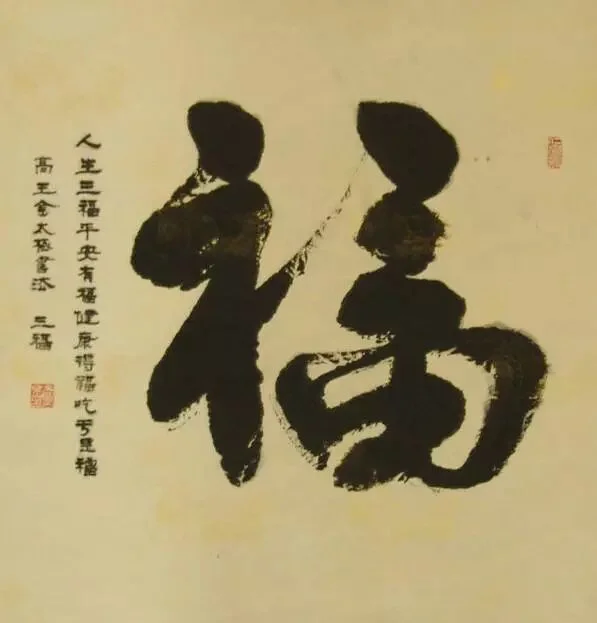 福
人生三福平安有福健康得福吃亏是福
高玉金太极書法 三福